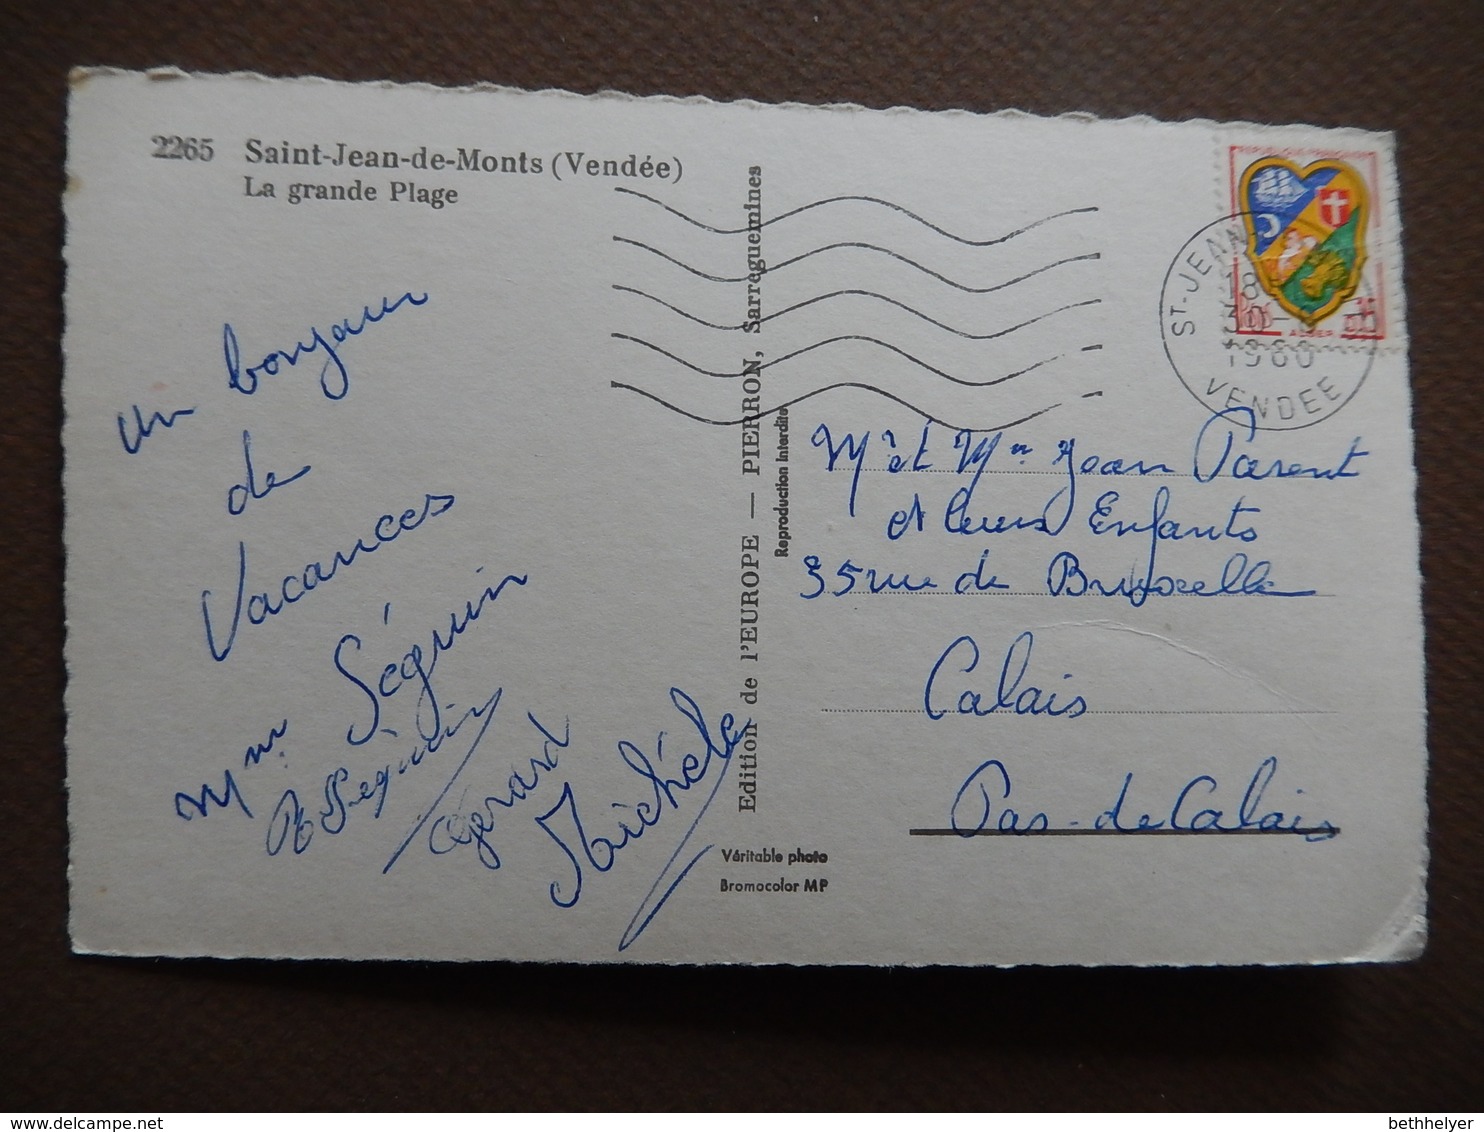 2265 Saint-Jean-de-Monts (Vendée)
La grande Plage
un bonjour
de
Vacances
Mme Séguin
Seguin
Gerard
Michéle
Edition de l'EUROPE — PIERRON, Sarreguemines
Reproduction interdite
Véritable photo
Bromocolor MP
REPUBLIQUE FRANÇAISE
ALGER
ST-JEAN
18
30
1960
VENDEE
Mr et Mme Jean Parent
et leurs Enfants
35 rue de Bruxelle
Calais
Pas-de Calais
bethhelyer